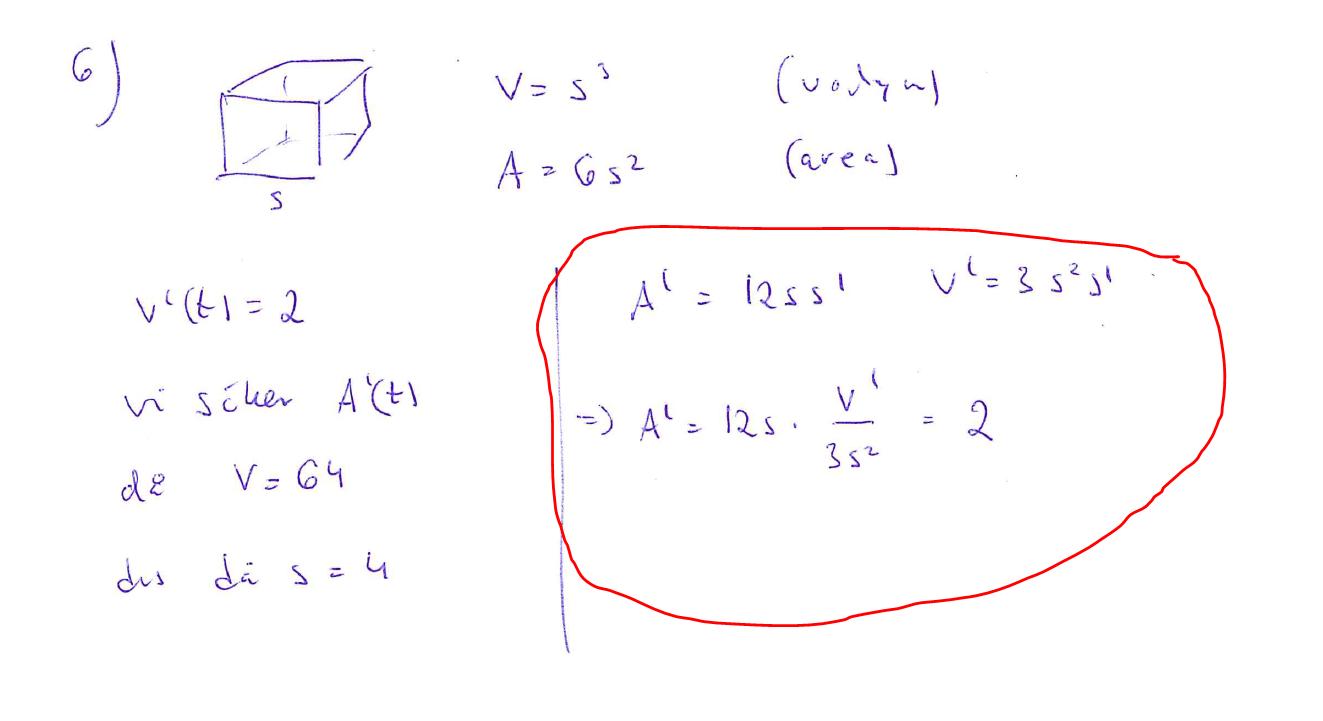 6)
V = s³ (volym)
A = 6s² (area)
s
V'(t) = 2
vi söker A'(t)
då V = 64
dvs då s = 4
A' = 12ss' V' = 3s²s'
=> A' = 12s · V'/3s² = 2